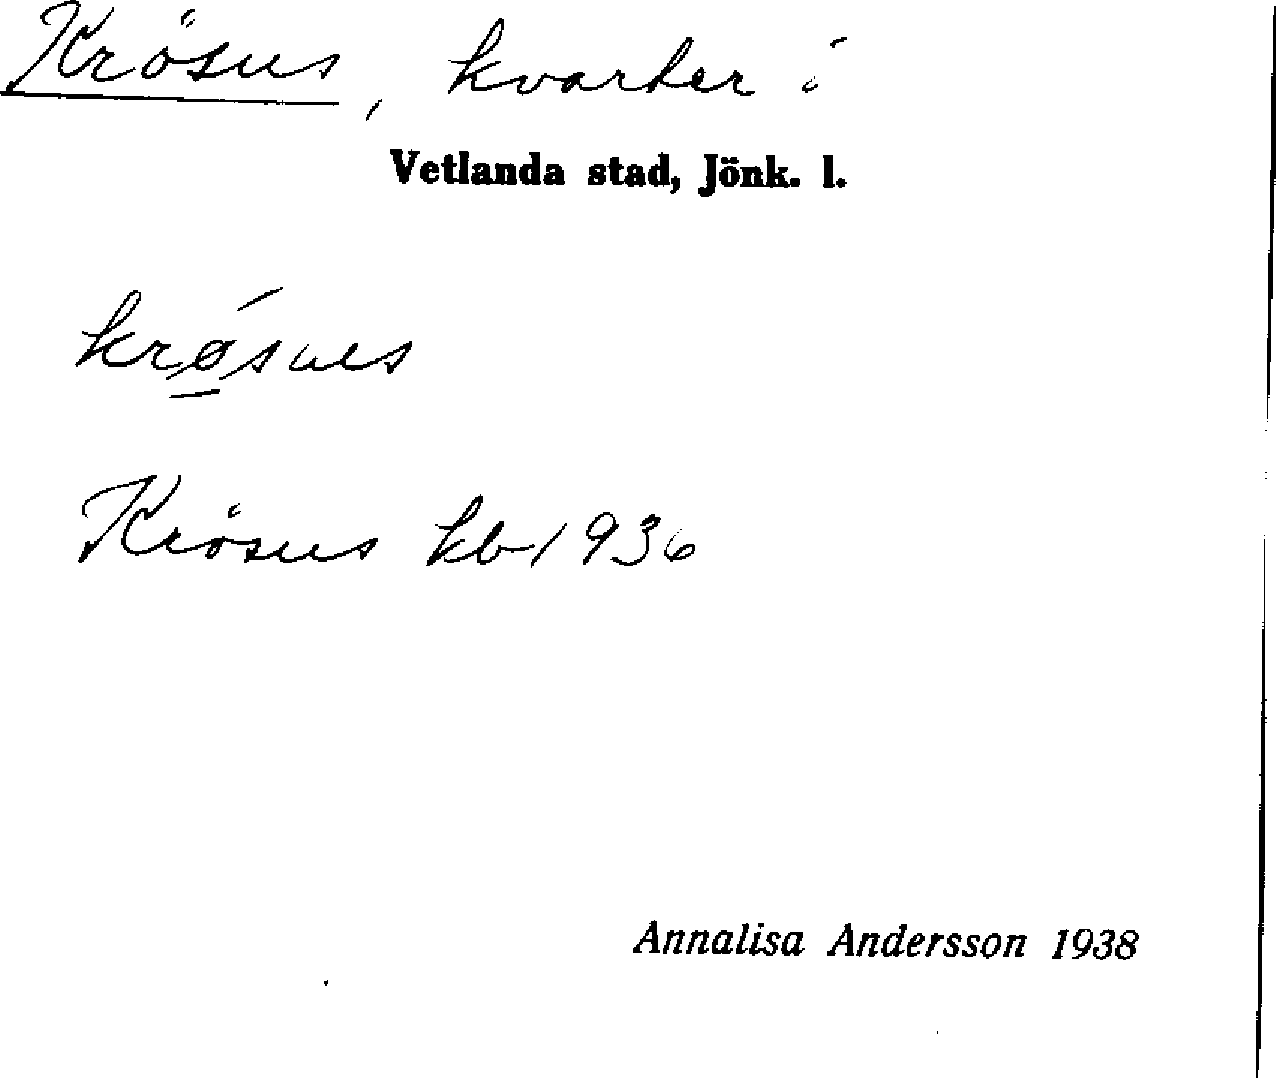 Krösus, kvarter i
Vetlanda stad, Jönk. l.
krǿ̱sues
Krösus kb 1936
Annalisa Andersson 1938